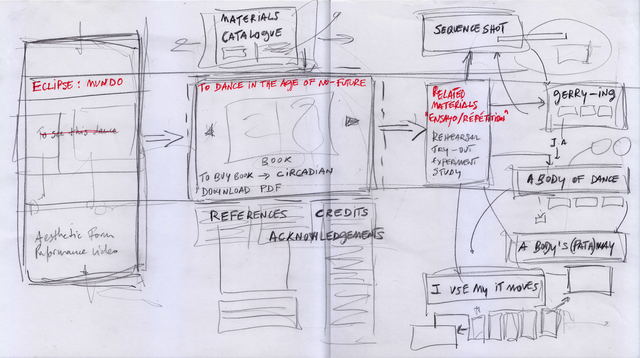 ECLIPSE: MUNDO
To see this dance
Aesthetic Form
Performance Video
MATERIALS
CATALOGUE
TO DANCE IN THE AGE OF NO-FUTURE
BOOK
TO BUY BOOK → CIRCADIAN
DOWNLOAD PDF
REFERENCES
CREDITS
ACKNOWLEDGEMENTS
SEQUENCE SHOT
RELATED
MATERIALS
"ENSAYO/RÉPÉTITION"
REHEARSAL
TRY-OUT
EXPERIMENT
STUDY
GERRY-ING
A BODY OF DANCE
A BODY'S (PATH)WAY
I USE MY IT MOVES